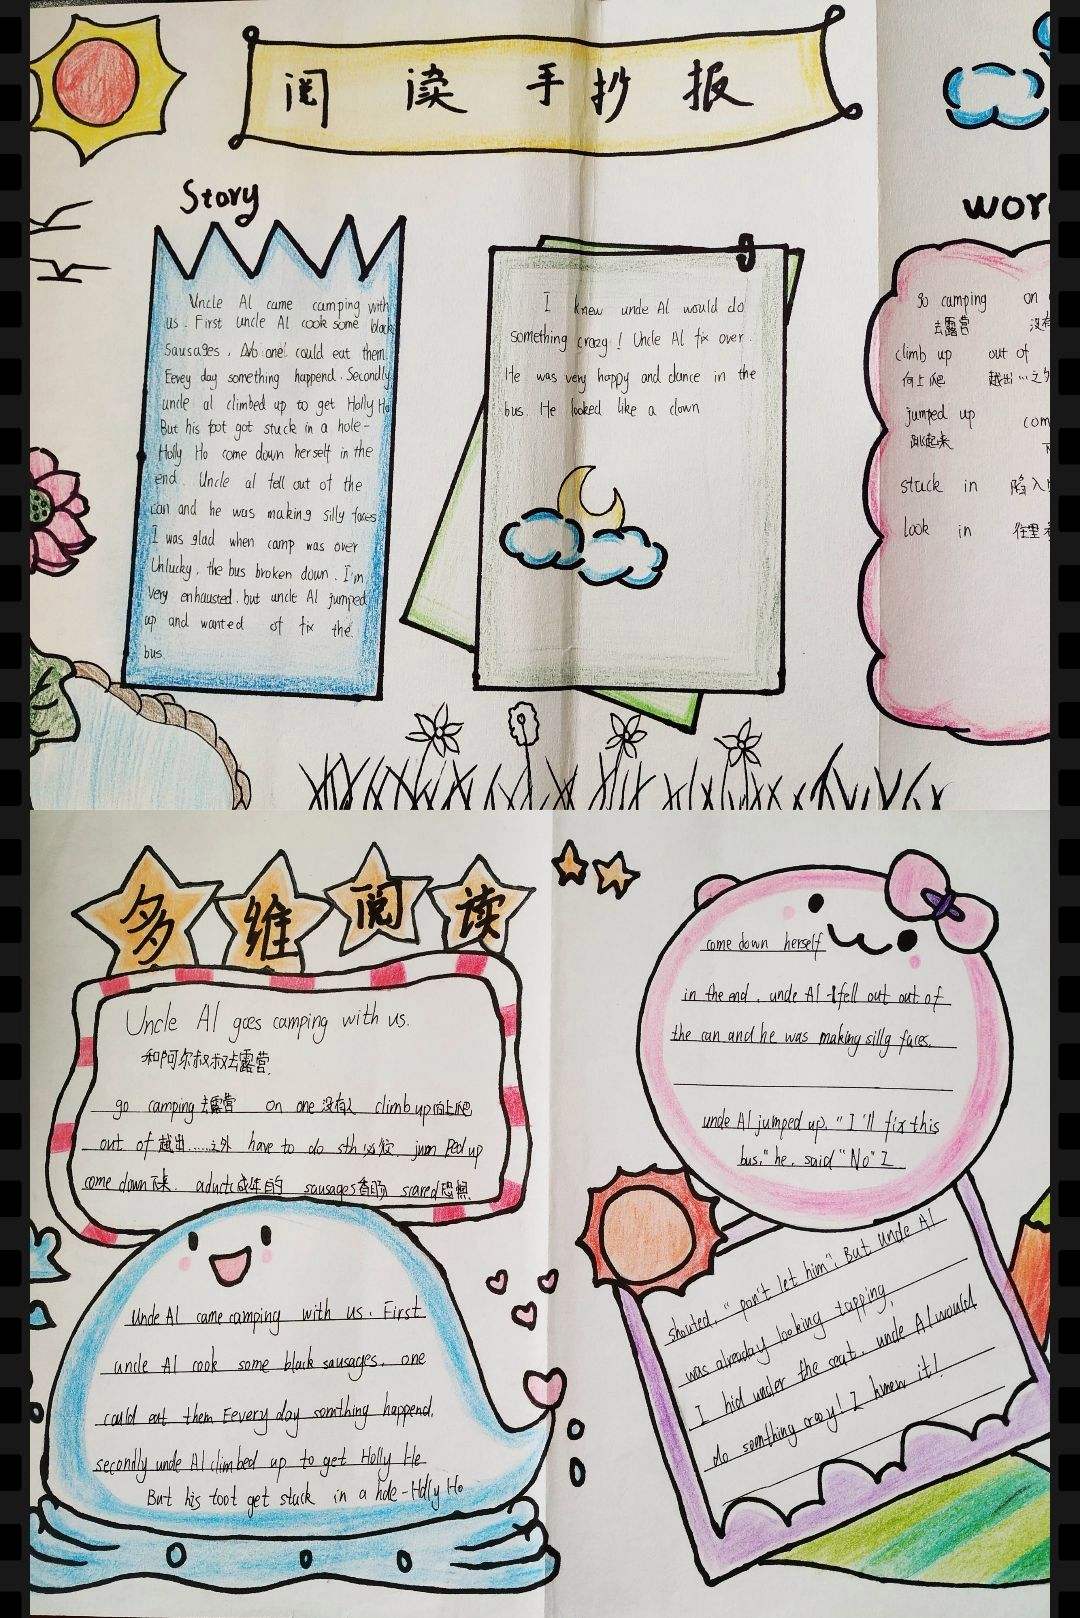 阅读手抄报
Story
Uncle Al came camping with
us. First uncle Al cook some black
Sausages, No one could eat them
Eevey day something happend. Secondly
uncle al climbed up to get Holly Ho
But his foot got stuck in a hole-
Holly Ho come down herself in the
end. Uncle al fell out of the
can and he was making silly faces
I was glad when camp was over
Unlucky, the bus broken down. I'm
very enhausted. but uncle Al jumped
up and wanted of fix the
bus
I knew uncle Al would do
something crazy! Uncle Al fix over.
He was very happy and dance in the
bus. He looked like a clown
wor
go camping on
去露营 没有
climb up out of
向上爬 越出…之外
jumped up com
跳起来 下
stuck in 陷入
look in 往里看
多维阅读
Uncle Al goes camping with us.
和阿尔叔叔去露营.
go camping去露营 on one没有人 climb up向上爬
out of 越出......之外 have to do sth 必须. jum ped up
come down下来. aduct成年的 sausages香肠 scared恐惧.
Uncle Al came camping with us. First
uncle Al cook some black sausages. one
could eat them Eevery day somthing happend.
secondly uncle Al climbed up to get Holly He
But his foot get stuck in a hole-Holly Ho
come down herself
in the end. uncle Al fell out out of
the can and he was making silly faces.
uncle Al jumped up. "I'll fix this
bus," he. said "No" I
shouted, "Don't let him". But uncle Al
was alreaday looking tapping,
I hid under the seat. uncle Al would
do somthing crazy! I knew it!